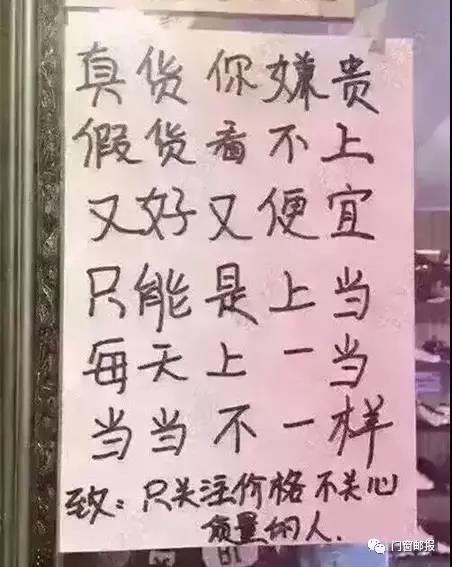 真货你嫌贵
假货看不上
又好又便宜
只能是上当
每天上一当
当当不一样
致：只关注价格不关心
质量的人.
门窗邮报